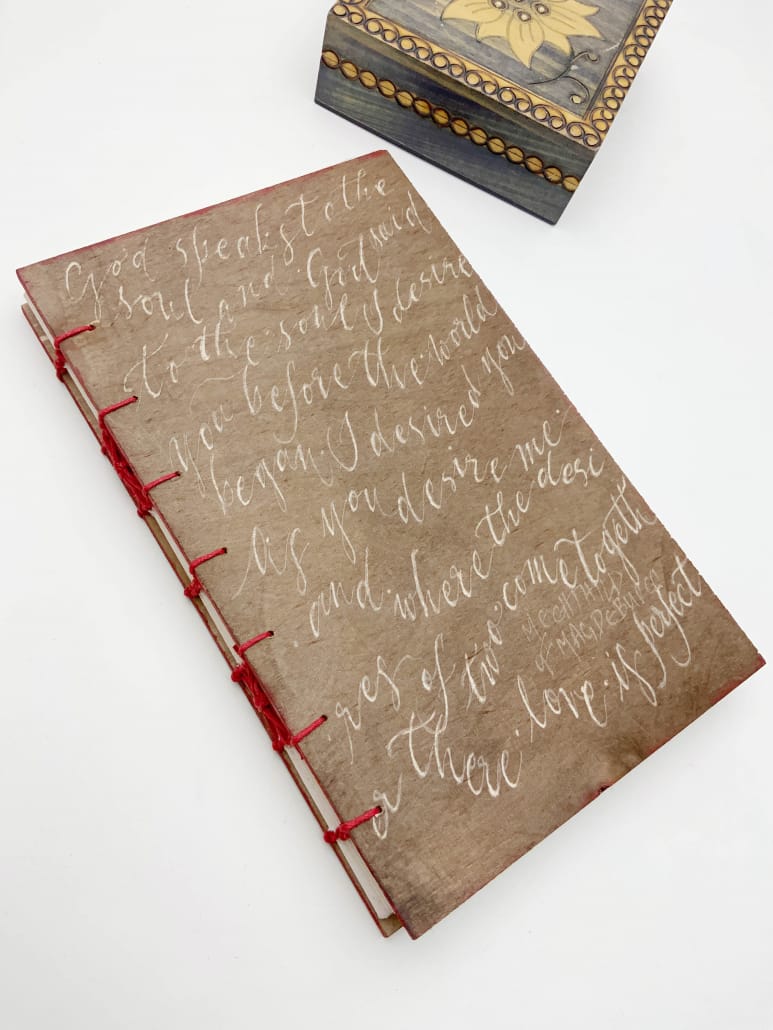 God speaks to the
soul and God said
to the soul I desire
you before the world
began. I desired you
as you desire me.
. and where the desi
res of two come togeth
er there love is perfect
MECHTHILD
of MAGDEBURG